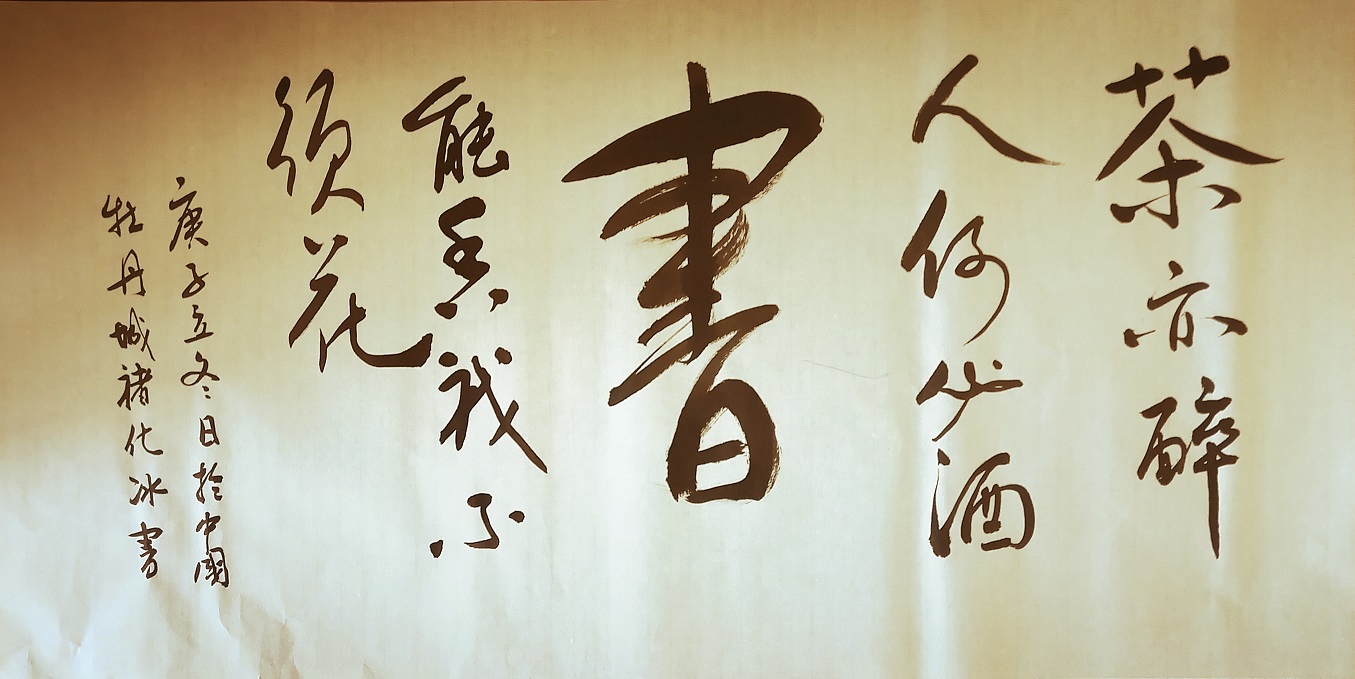 茶亦醉
人何必酒
書
能香我不
須花
庚子立冬日於中國
牡丹城褚化冰書